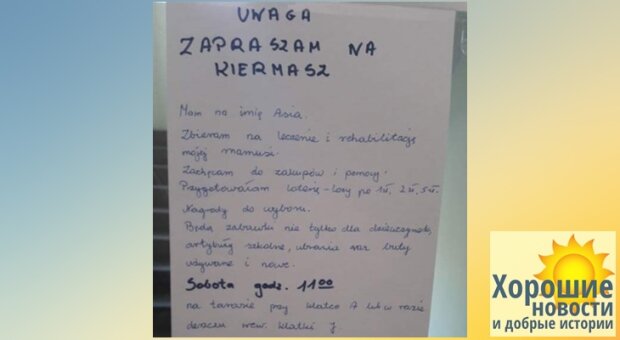 UWAGA
ZAPRASZAM NA
KIERMASZ
Mam na imię Asia.
Zbieram na leczenie i rehabilitację
mojej mamusi.
Zachęcam do zakupów i pomocy.
Przygotowałam loterię-losy po 1zł, 2zł, 5zł.
Nagrody do wyboru.
Będą zabawki nie tylko dla dziewczynek,
artykuły szkolne, ubrania oraz buty
używane i nowe.
Sobota godz. 11 00
na tarasie przy klatce A lub w razie
deszczu wew. klatki J.
Хорошие
новости
и добрые истории